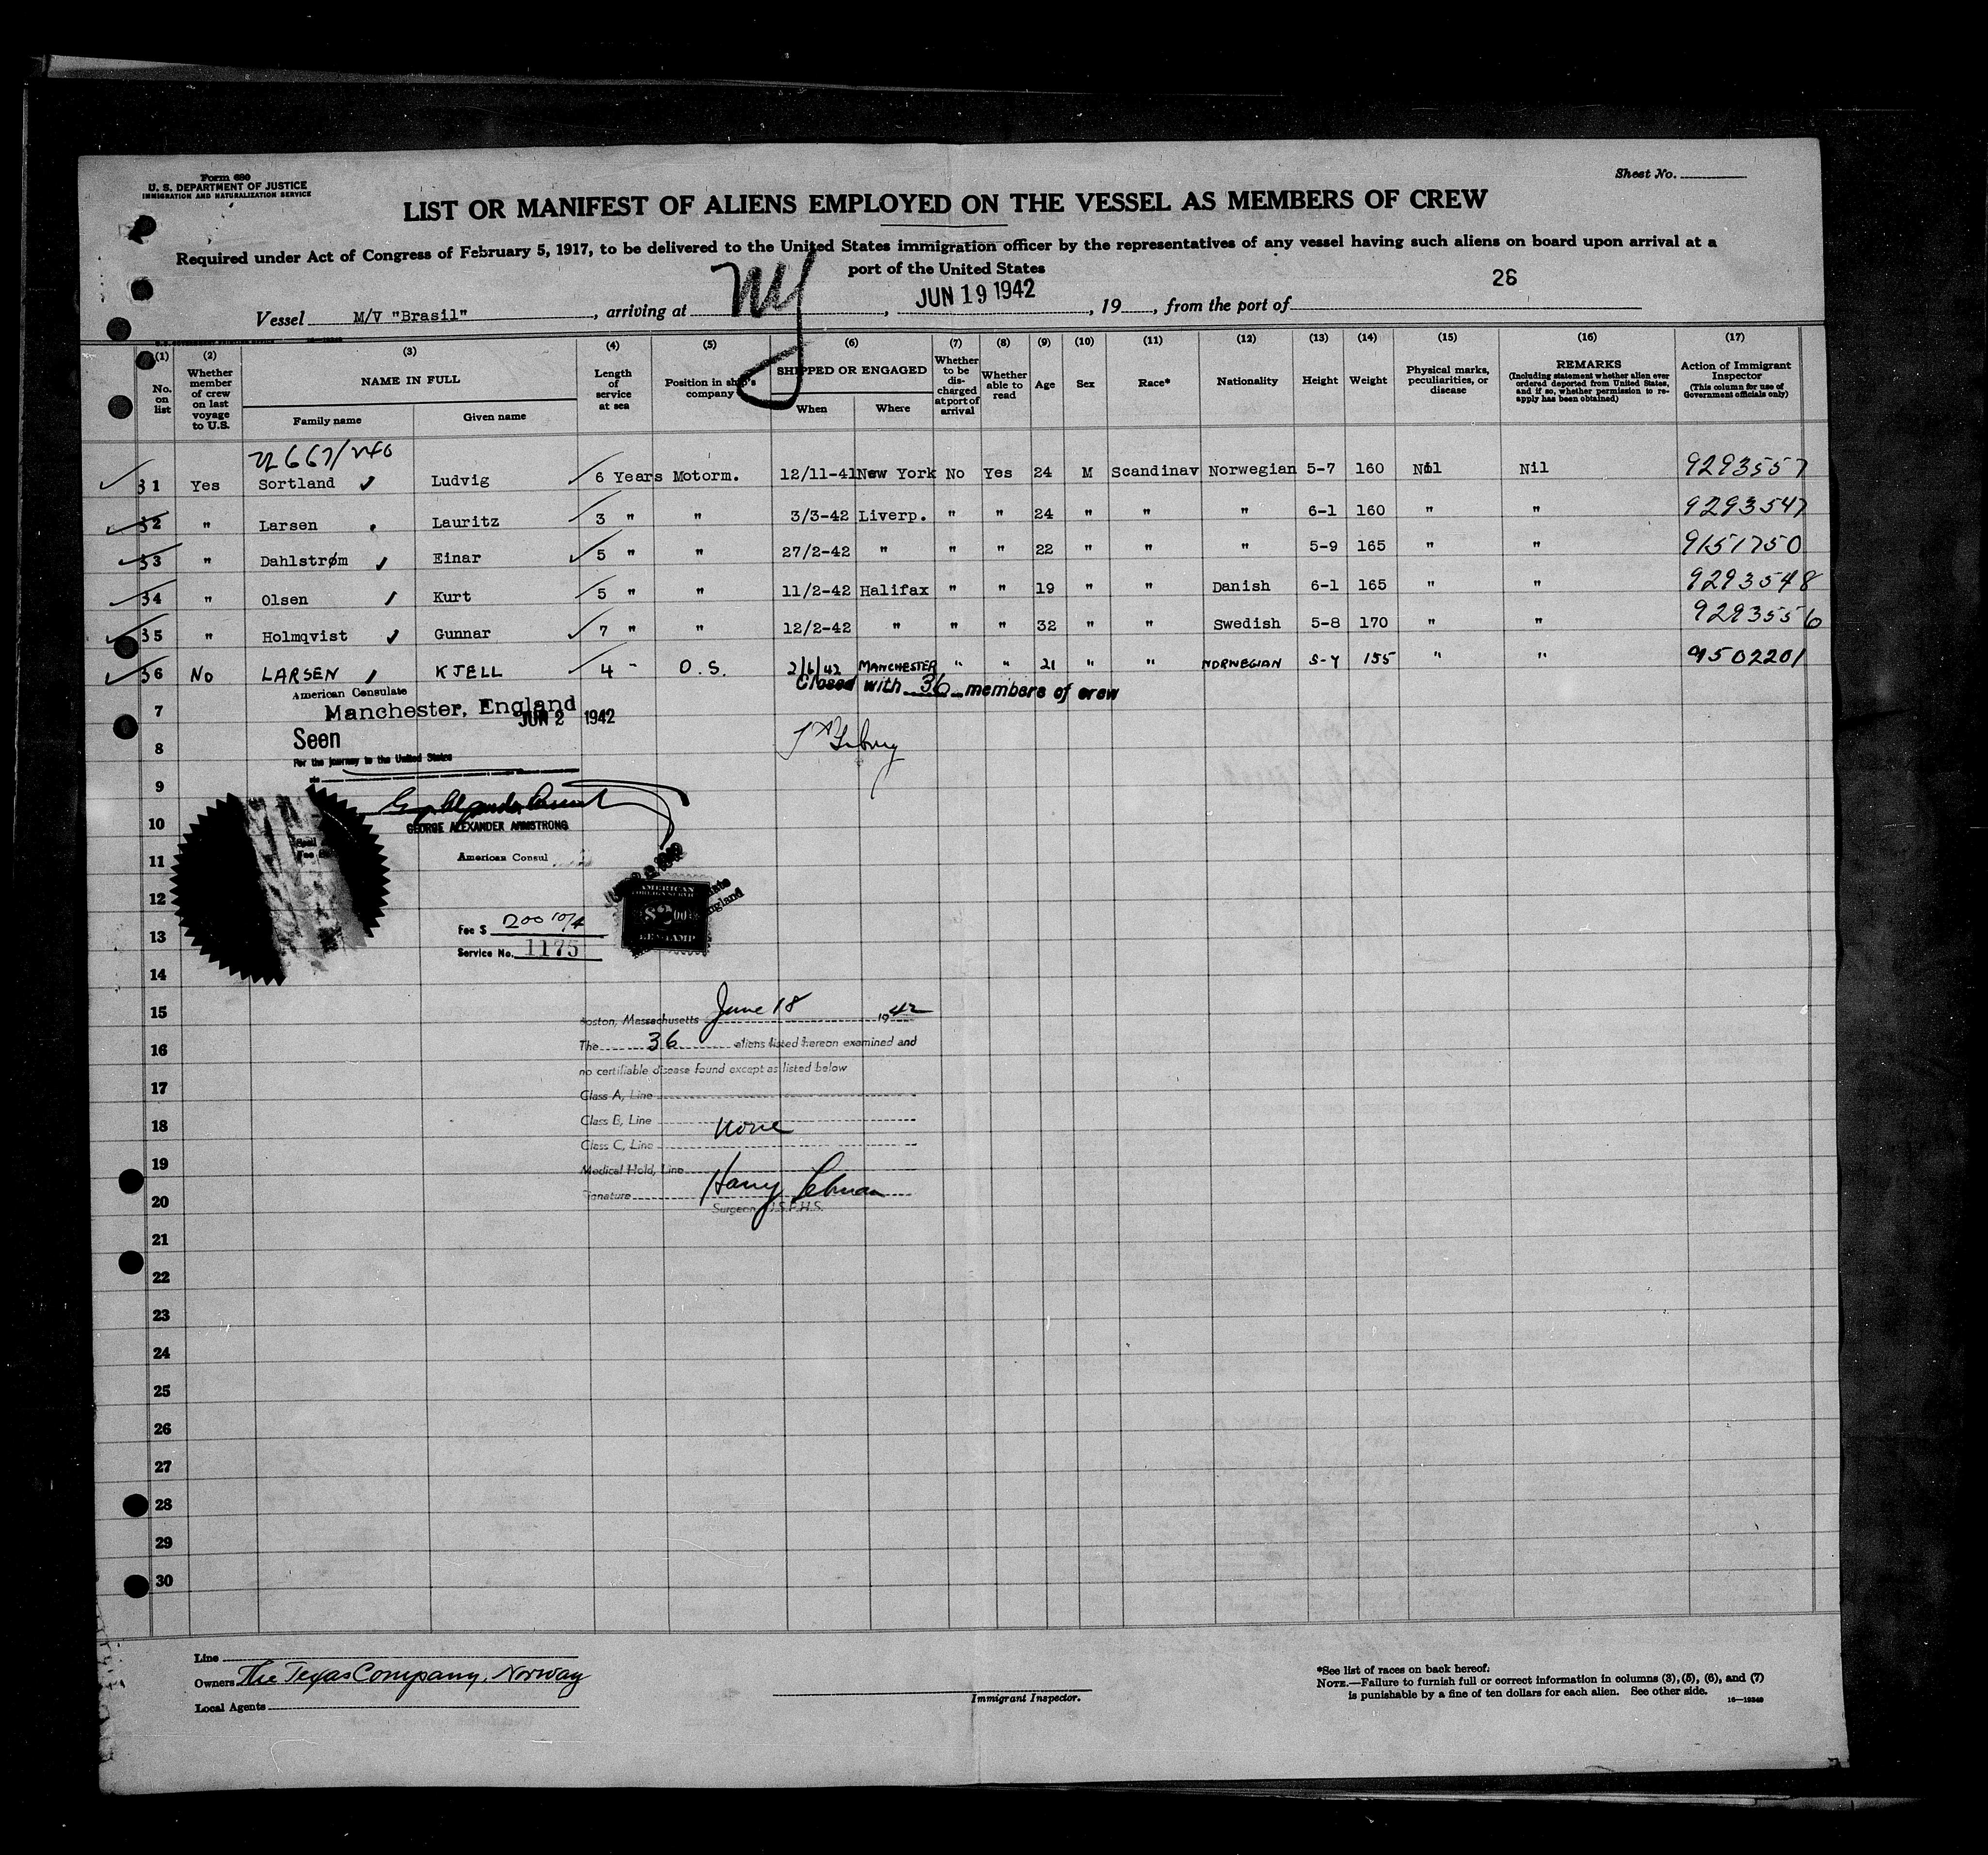 Form 680
U. S. DEPARTMENT OF JUSTICE
IMMIGRATION AND NATURALIZATION SERVICE
Sheet No.
LIST OR MANIFEST OF ALIENS EMPLOYED ON THE VESSEL AS MEMBERS OF CREW
Required under Act of Congress of February 5, 1917, to be delivered to the United States immigration officer by the representatives of any vessel having such aliens on board upon arrival at a
port of the United States
26
Vessel M/V "Brasil", arriving at NY, JUN 19 1942, 19, from the port of
(1) (2) (3) (4) (5) (6) (7) (8) (9) (10) (11) (12) (13) (14) (15) (16) (17)
No. on list
Whether member of crew on last voyage to U.S.
NAME IN FULL
Family name
Given name
Length of service at sea
Position in ship's company
SHIPPED OR ENGAGED
When
Where
Whether to be discharged at port of arrival
Whether able to read
Age
Sex
Race*
Nationality
Height
Weight
Physical marks, peculiarities, or disease
REMARKS
(Including statement whether alien ever ordered deported from United States, and if so, whether permission to reapply has been obtained)
Action of Immigrant Inspector
(This column for use of Government officials only)
31 Yes Sortland Ludvig 6 Years Motorm. 12/11-41 New York No Yes 24 M Scandinav Norwegian 5-7 160 Nil Nil 9293557
32 " Larsen Lauritz 3 " " 3/3-42 Liverp. " " 24 " " " 6-1 160 " " 9293547
33 " Dahlstrøm Einar 5 " " 27/2-42 " " " 22 " " " 5-9 165 " " 9151750
34 " Olsen Kurt 5 " " 11/2-42 Halifax " " 19 " " Danish 6-1 165 " " 9293548
35 " Holmqvist Gunnar 7 " " 12/2-42 " " " 32 " " Swedish 5-8 170 " " 9293556
36 No LARSEN KJELL 4 - O.S. 2/6/42 MANCHESTER " " 21 " " NORWEGIAN 155 " " 9502201
Closed with 36 members of crew
American Consulate
Manchester, England
JUN 2 1942
Seen
For the journey to the United States
GEORGE ALEXANDER ARMSTRONG
American Consul
AMERICAN
FOREIGN SERVICE
$2.00
FEE STAMP
Fee $
Service No. 1175
7
8
9
10
11
12
13
14
15
16
17
18
19
20
21
22
23
24
25
26
27
28
29
30
Boston, Massachusetts June 18 1942
The 36 aliens listed hereon examined and
no certifiable disease found except as listed below
Class A, Line
Class B, Line None
Class C, Line
Medical Hold, Line
Signature Harry Lehman
Surgeon U.S.P.H.S.
Line
Owners The Texas Company, Norway
Local Agents
Immigrant Inspector.
*See list of races on back hereof.
NOTE.—Failure to furnish full or correct information in columns (3), (5), (6), and (7)
is punishable by a fine of ten dollars for each alien. See other side.